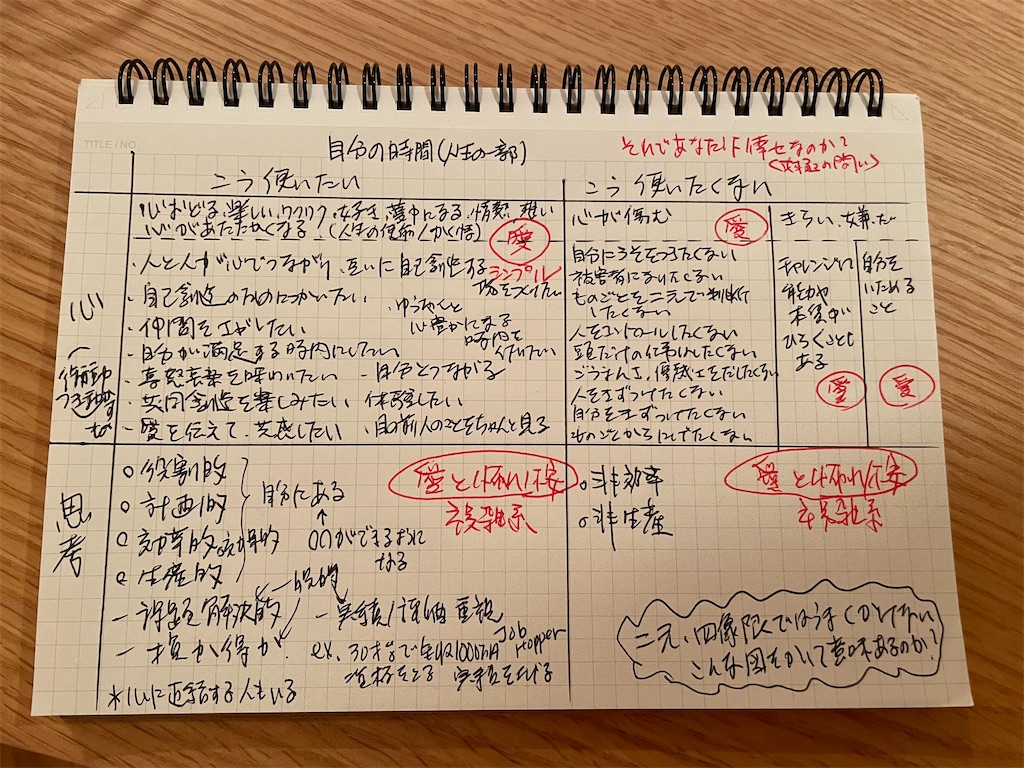 TITLE / NO.
自分の時間(人生の一部)
それであなたは幸せなのか?
こう使いたい
こう使いたくない
心おどる、楽しい、ワクワク、好き、夢中になる、情熱、想い
心があたたかくなる?(人生の使命/かく悟)
愛
心が傷む
愛
きらい、嫌だ
心
(行動
つき動かす
・人と人が心でつながり、互いに自己創造する
・自己創造のためにつかいたい
・仲間をさがしたい
・自分が満足する時間にしたい
・喜怒哀楽を味わいたい
・共同創造を楽しみたい
・愛を伝えて、共感したい
ゆうゆうと
心豊かになる
時間を
・自分とつながる
体験したい
・目の前人のことをちゃんと見る
自分にうそをつきたくない
被害者になりたくない
ものごとを二元で判断
したくない
人をコントロールしたくない
頭だけの仕事はしたくない
ごうまんさ、優越感をだしたくない
人をきずつけたくない
自分をきずつけたくない
ものごとからにげたくない
チャレンジして
能力や
本質が
ひろくことも
ある
愛
自分を
いためる
こと
愛
思考
○役割的
○計画的
○効率的、効果的
○生産的
自分にある
↑
○○ができるように
なる
愛とは、怖れ/不安
複雑系
一般的
ー課題解決的
ー損か得か
ー実績/評価重視
ex. 30才までで年収1000万円
Job Hopper
資格をとる 実績をあげる
*心に直結する人もいる
○非効率
○非生産
愛とは、怖れ/不安
複雑系
二元・四象限ではうまくかけない
こんな図をかいて意味あるのか?